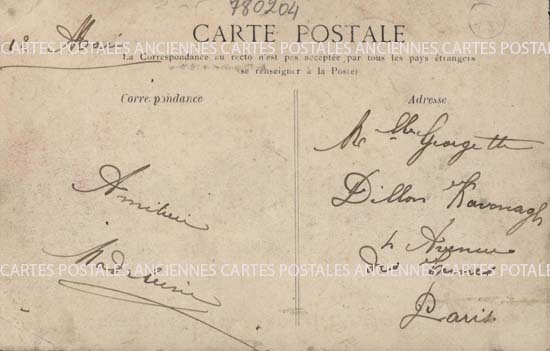 780204
CARTE POSTALE
CARTES POSTALES ANCIENNES CARTES POSTALES ANCIENNES CARTES POSTALES
La Correspondance au recto n'est pas acceptée par tous les pays étrangers
(se renseigner à la Poste)
Correspondance
Adresse
Mlle Georgette
Dillon Kavanagh
4 Avenue
des
Paris
CARTES POSTALES ANCIENNES CARTES POSTALES ANCIENNES CARTES POSTALES